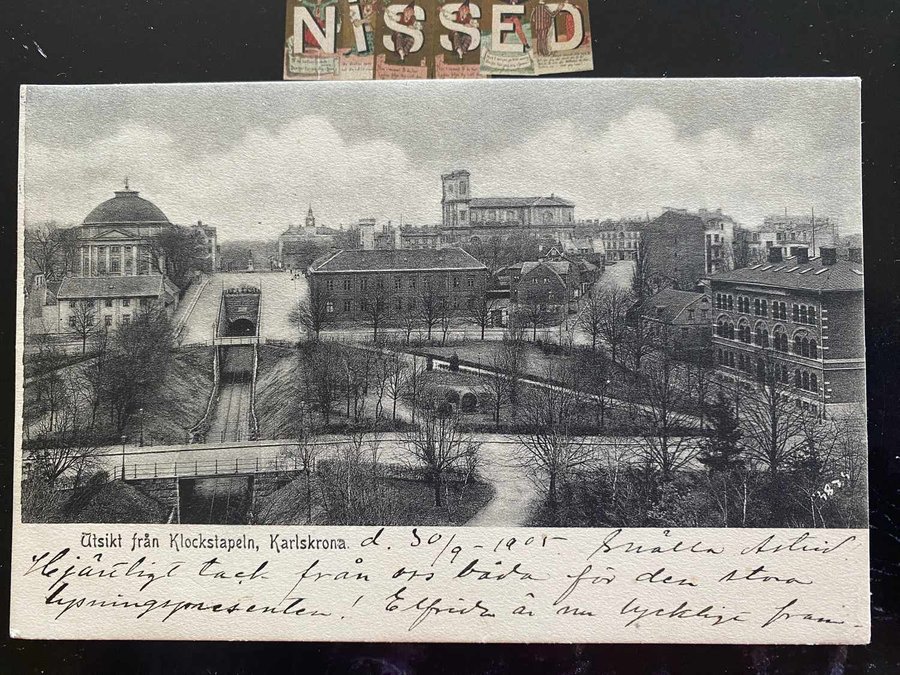 NiSSED
4834
Utsikt från Klockstapeln, Karlskrona. d. 30/9-1905 Snälla Astrid
Hjärtligt tack från oss båda för den stora
lysningspresenten! Elfrida är nu lycklige fram-